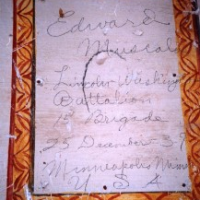 Edward
Muscala
Lincoln-Washington
Battalion
15 Brigade
25 December 37
Minneapolis Minn
U S A